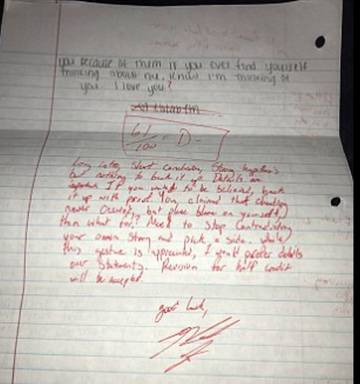 you because of them if you ever find yourself
thinking about me, know I'm thinking of
you I love you?
61/100 = D-
Long intro, short conclusion, strong hypothesis
but nothing to back it up. Details are
important. If you want to be believed, back
it up with proof. You claimed that cheating
never occurred, but place blame on yourself,
then what for? Need to stop contradicting
your own story and pick a side. While
this gesture is appreciated, I would prefer details
over statements. Revision for half credit
will be accepted.
good luck,